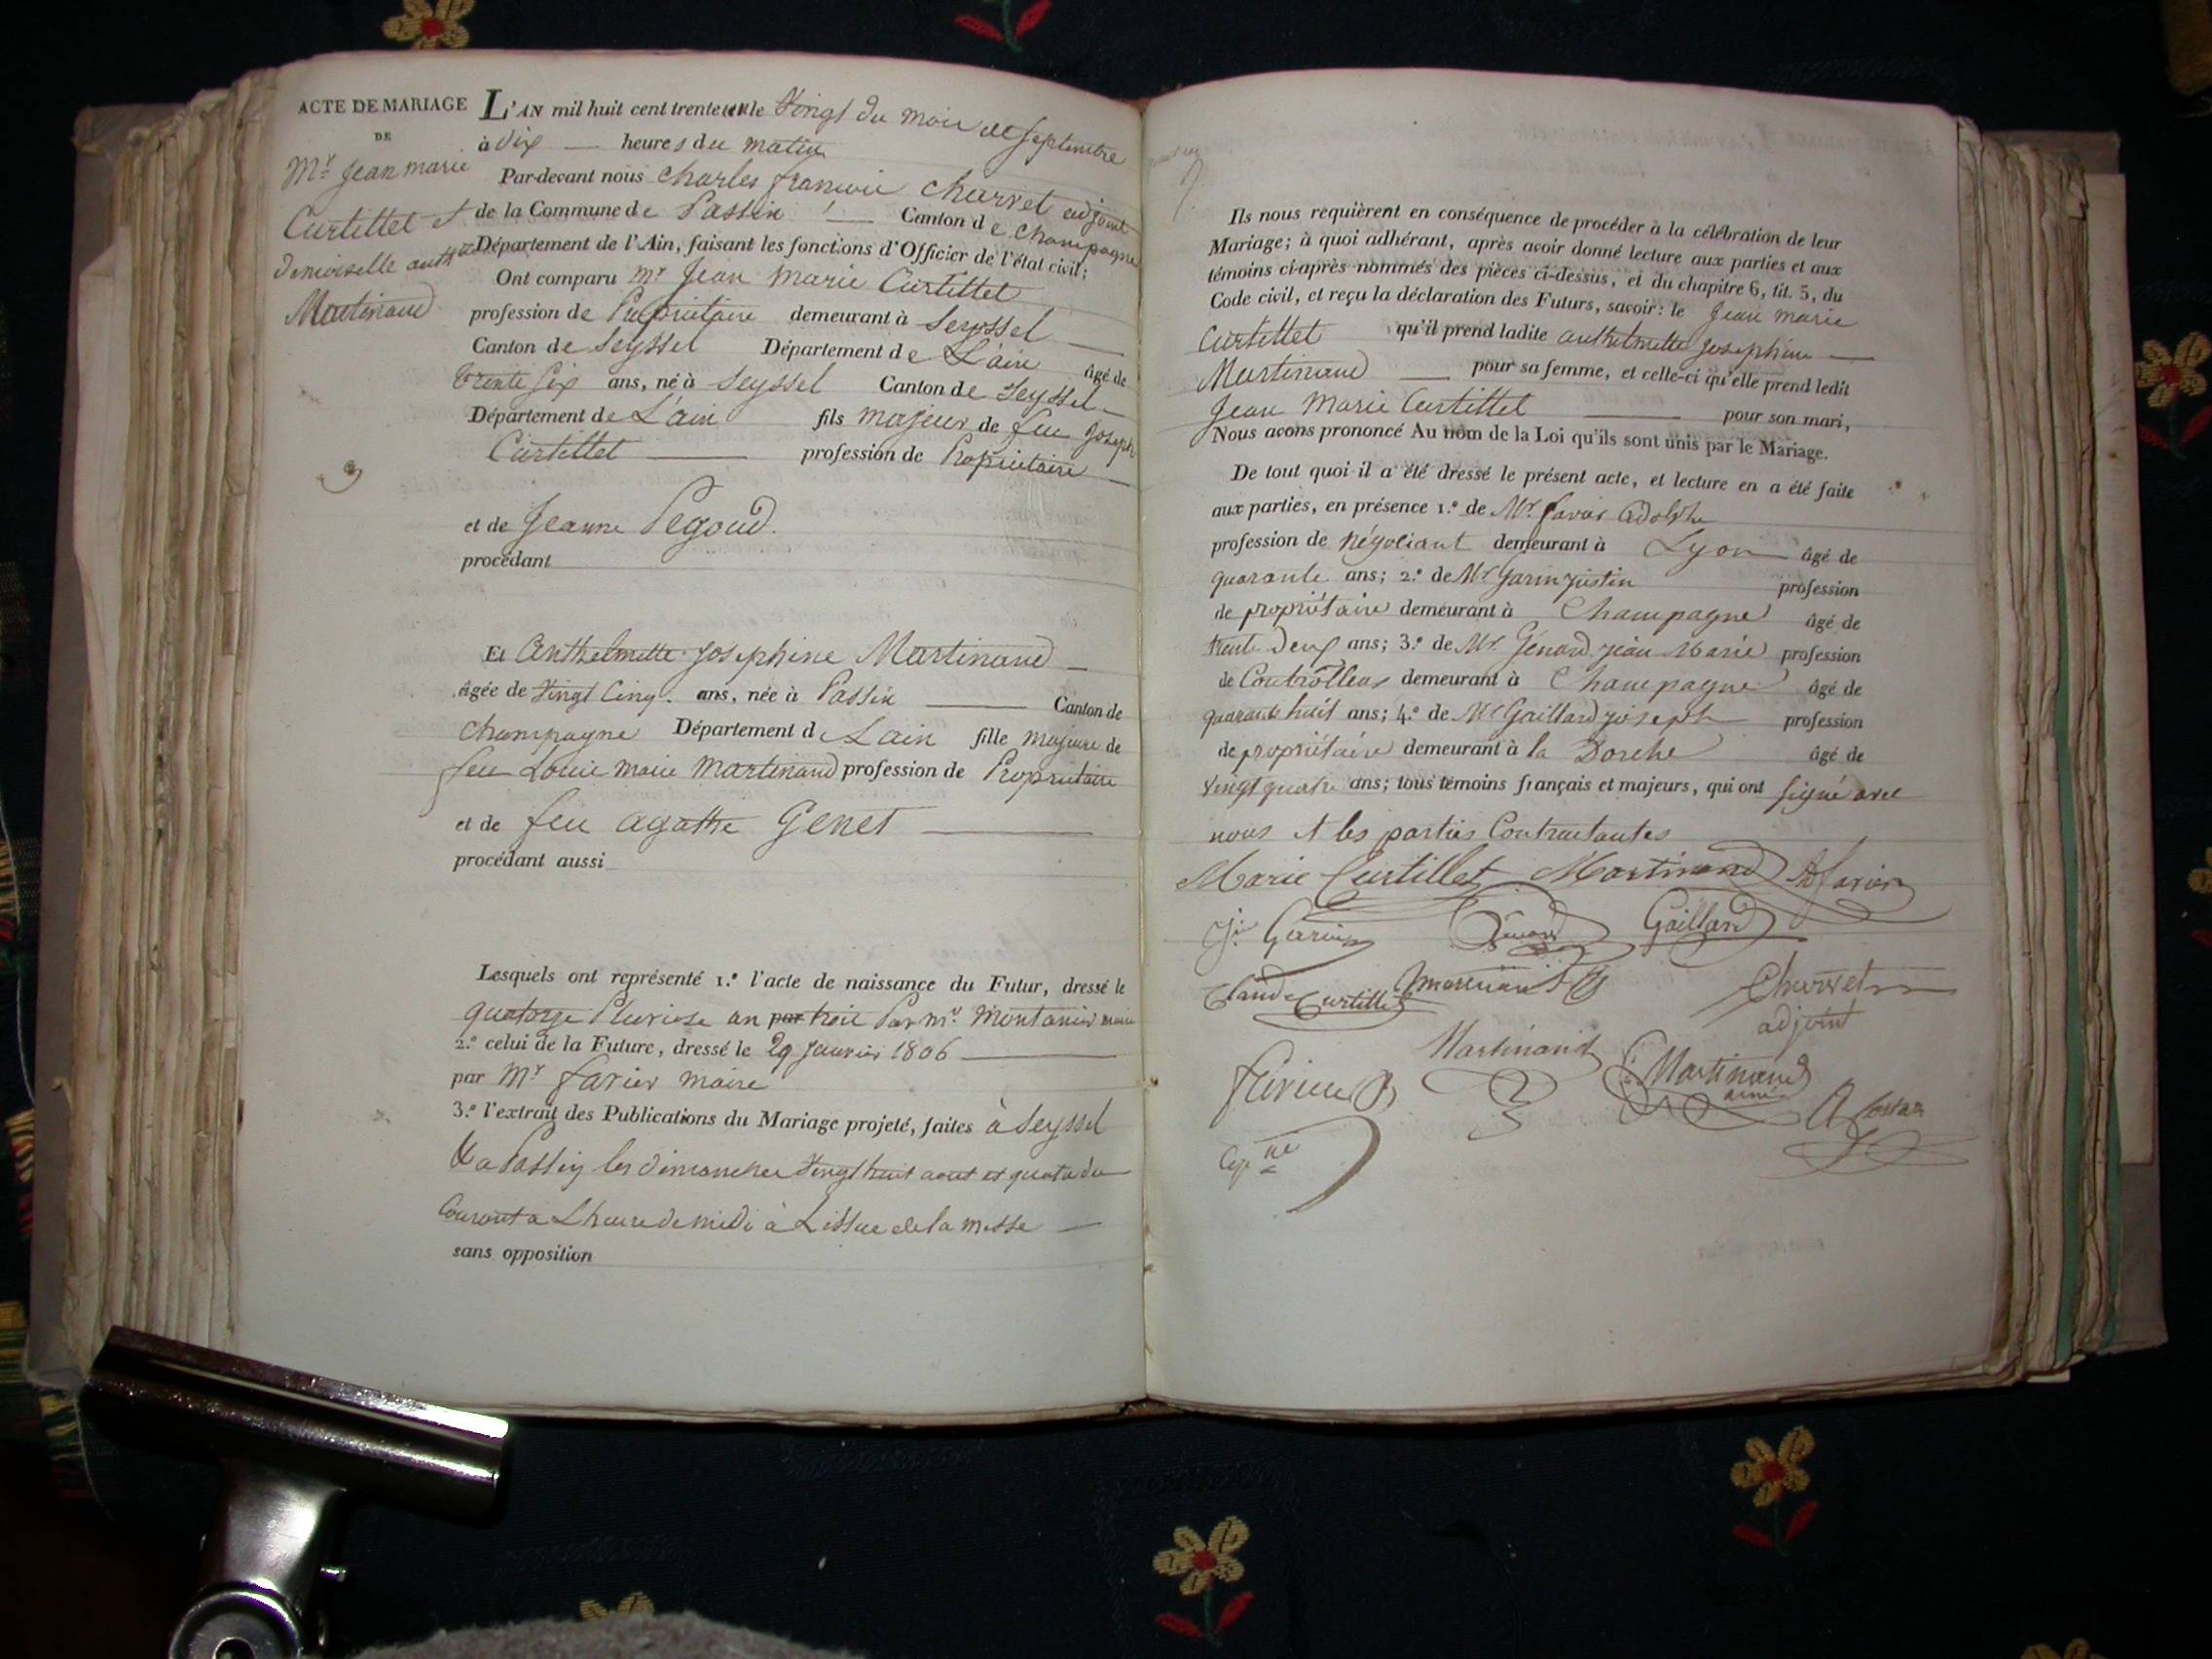 ACTE DE MARIAGE
DE
Mr. Jean marie
Curtillet et
demoiselle anth
Martinand
L'AN mil huit cent trente un le Vingt du mois de Septembre
à dix — heures du matin
Par-devant nous Charles francois Charvet adjoint
de la Commune de Passin — Canton de Champagne
Département de l'Ain, faisant les fonctions d'Officier de l'état civil;
Ont comparu mr Jean Marie Curtillet
profession de Propriétaire demeurant à Seyssel —
Canton de Seyssel Département de L'ain âgé de
trente six ans, né à Seyssel Canton de Seyssel —
Département de L'ain fils majeur de feu Joseph
Curtillet — profession de Propriétaire —
et de Jeanne Pegoud.
procédant
Et Anthelmette Josephine Martinand —
âgée de Vingt Cinq. ans, née à Passin — Canton de
Champagne Département de Lain fille majeure de
feu Louis marie Martinand profession de Propriétaire
et de feu agathe Genet —
procédant aussi
Lesquels ont représenté 1.º l'acte de naissance du Futur, dressé le
quatorze Pluviose an par trois Par mr. Montanier maire
2.º celui de la Future, dressé le 29 Janvier 1806 —
par Mr favier maire
3.º l'extrait des Publications du Mariage projeté, faites à Seyssel
& a Passin les dimanches Vingt huit aout et quatre du
Courant a Lheure de midi à Lissue de la messe —
sans opposition
Ils nous requièrent en conséquence de procéder à la célébration de leur
Mariage; à quoi adhérant, après avoir donné lecture aux parties et aux
témoins ci-après nommés des pièces ci-dessus, et du chapitre 6, tit. 5, du
Code civil, et reçu la déclaration des Futurs, savoir: le Jean marie
Curtillet qu'il prend ladite anthelmette Josephine —
Martinand — pour sa femme, et celle-ci qu'elle prend ledit
Jean Marie Curtillet — pour son mari,
Nous avons prononcé Au nom de la Loi qu'ils sont unis par le Mariage.
De tout quoi il a été dressé le présent acte, et lecture en a été faite
aux parties, en présence 1.º de Mr. favier Adolphe
profession de négociant demeurant à Lyon âgé de
quarante ans; 2.º de Mr Garin justin profession
de propriétaire demeurant à Champagne âgé de
trente deux ans; 3.º de Mr. Génard jean Marie profession
de Controlleur demeurant à Champagne âgé de
quarante huit ans; 4.º de Mr Gaillard joseph profession
de propriétaire demeurant à la Dorche âgé de
vingt quatre ans; tous témoins français et majeurs, qui ont signé avec
nous et les parties Contractantes
Marie Curtillet Martinand Ad favier
Jn Garin Génard Gaillard
Claude Curtillet Charvet
adjoint
Martinand Martinand
ainé
favier